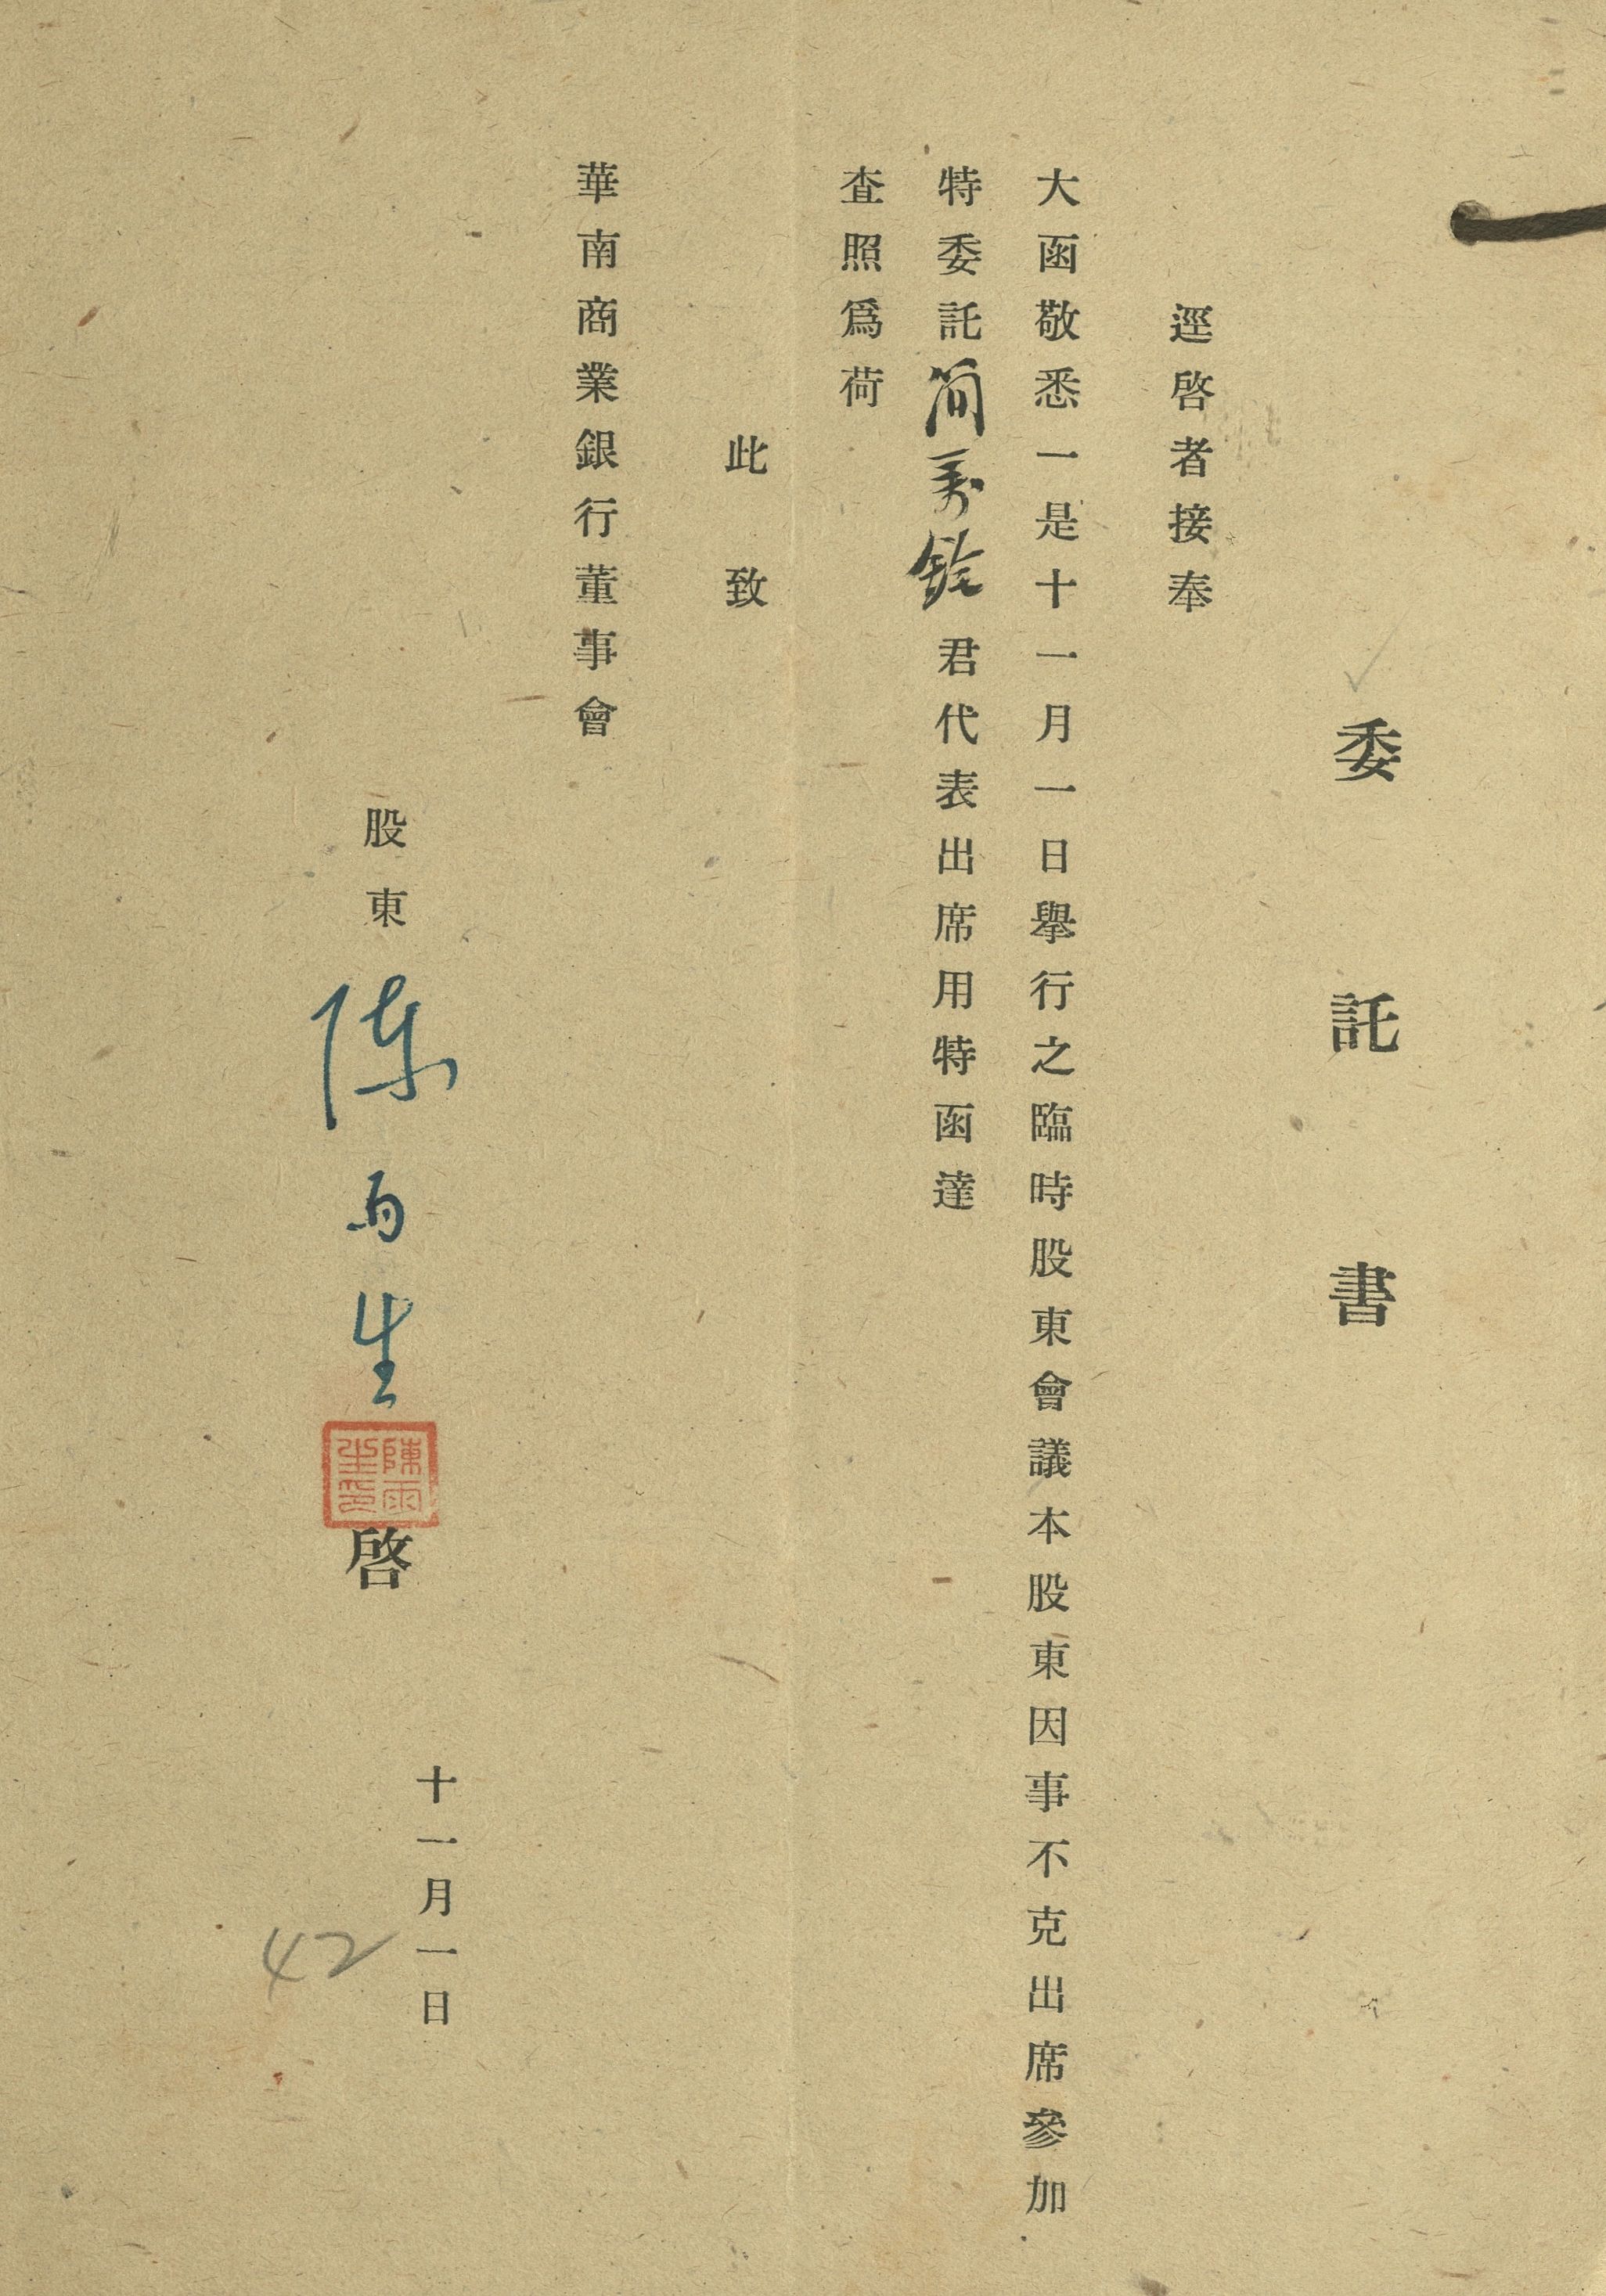 委託書
逕啓者接奉
大函敬悉一是十一月一日舉行之臨時股東會議本股東因事不克出席參加
特委託簡萬銓君代表出席用特函達
查照爲荷
此致
華南商業銀行董事會
股東 陳雨生 啓
陳雨生印
十一月一日
42